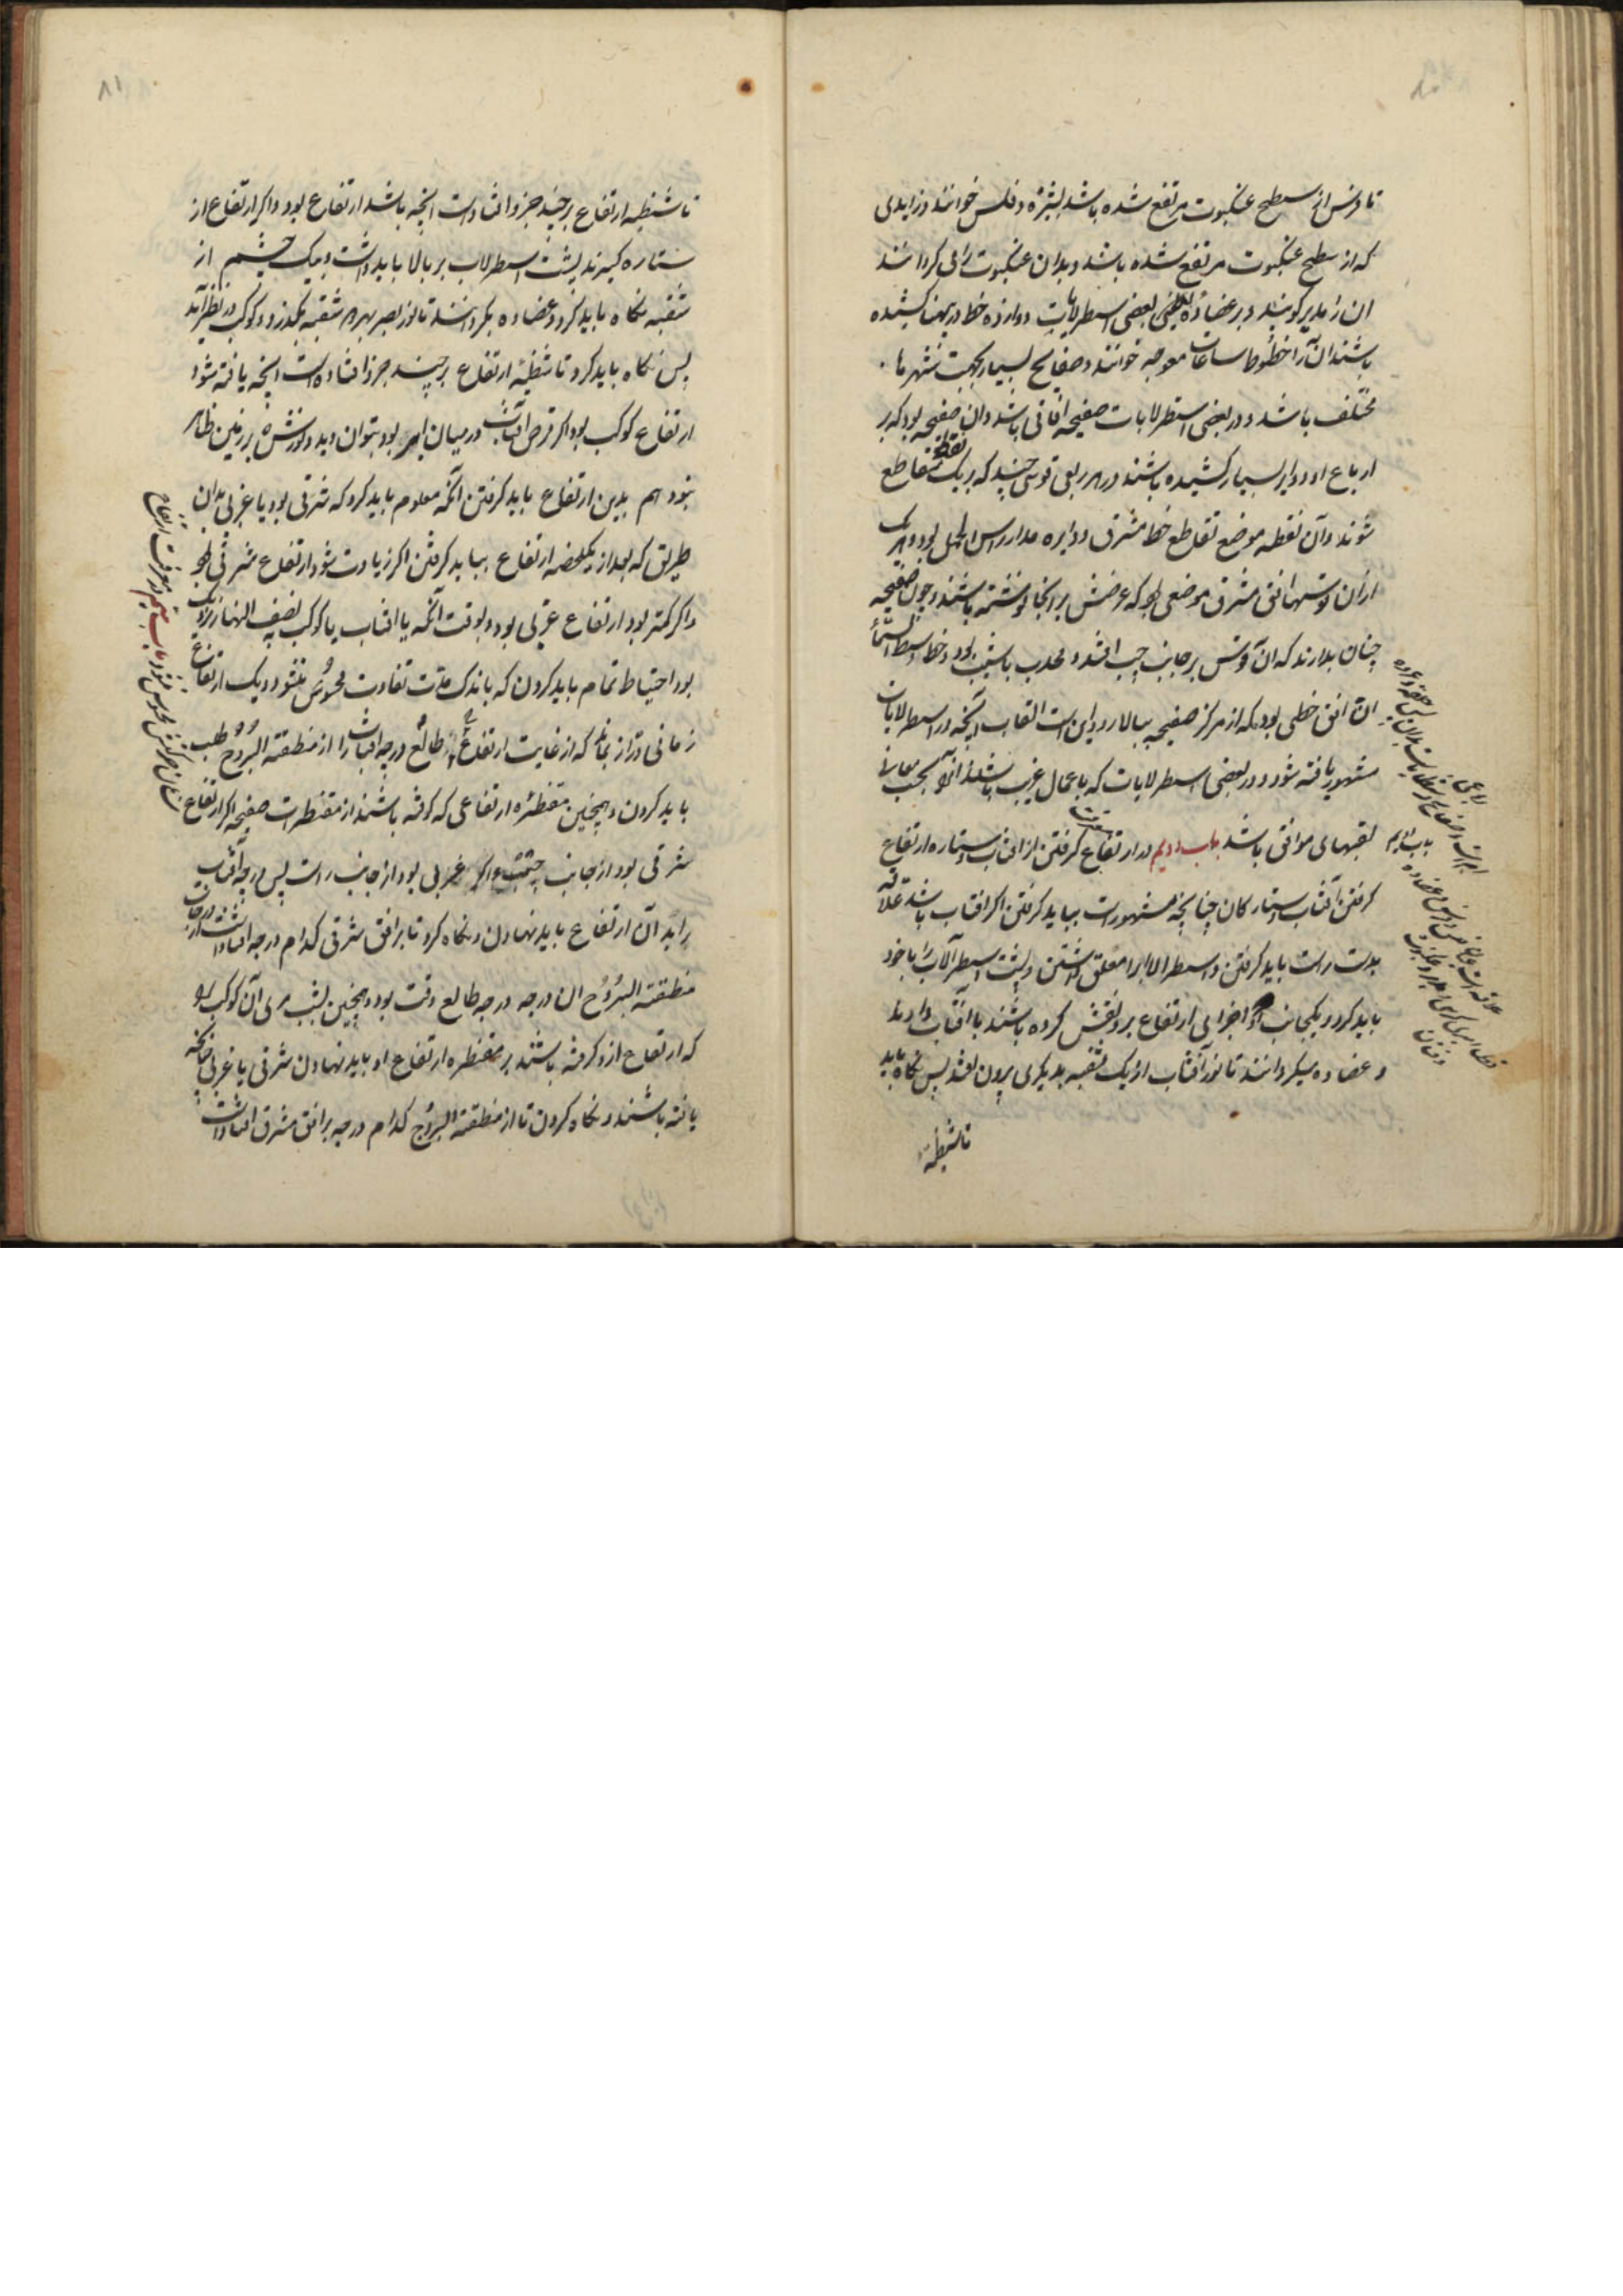 تا فرس از سطح عنکبوت مرتفع شده باشد بشیزه و فلس خوانند و زایدی
که از سطح عنکبوت مرتفع شده باشد و بدان عنکبوت را می گردانند
ان را مدیر گویند و بر عضاده بعضی اسطرلابات دوازده خط در پهنا کشیده
باشند ان را خطوط ساعات معوجه خوانند و صفایح بسیار بجهت شهرها
مختلف باشد و در بعضی اسطرلابات صفیحه افاقی باشد و ان صفیحه بود که بر
ارباع او دوایر بسیار کشیده باشند در هر ربعی قوسی چند که بر یک نقطه متقاطع
شوند و آن نقطه موضع تقاطع خط مشرق و دایره مدار راس الحمل بود و هر یک
ازان قوسها افق مشرق موضعی بود که عرضش بر انجا نوشته باشند و چون صفیحه
چنان بدارند که ان قوس بر جانب چپ افتد و محدب با شیب بود و خط وسط السماء
ان افق خطی بود که از مرکز صفیحه ببالا رود این است القاب آنچه در اسطرلابات
مشهور یافته شود و در بعضی اسطرلابات که با عمال غریب باشد انرا بحسب معانی
لقبهای موافق باشد باب دویم در ارتفاع گرفتن از افتاب و ستاره ارتفاع
گرفتن آفتاب و ستارگان چنانچه مشهورست بباید گرفتن اگر افتاب باشد علاقه
بدست راست باید گرفتن و اسطرلاب را معلق داشتن و پشت اسطرلاب را با خود
باید کرد و یکجانب که اجزای ارتفاع برو نقش کرده باشند با افتاب دارند
و عضاده میگردانند تا نور آفتاب از یک ثقبه بدیگری بیرون افتد پس نگاه باید
تا شظیه
۸۱
تا شظیه ارتفاع بر چند جزو افتادست انچه باشد ارتفاع بود و اگر ارتفاع از
ستاره گیرند پشت اسطرلاب بر بالا باید داشت و بیک چشم از
ثقبه نگاه باید کرد و عضاده بگردانند تا نور بصر بهر دو ثقبه بگذرد و کوکب در نظر آید
پس نگاه باید کرد تا شظیه ارتفاع بر چند جزو افتاده است انچه یافته شود
ارتفاع کوکب بود و اگر قرص افتاب در میان ابر بود بتوان دید و نورش بر زمین ظاهر
نبود هم بدین ارتفاع باید گرفتن آنگه معلوم باید کرد که شرقی بود یا غربی بدان
طریق که بعد از یک لحظه ارتفاع بباید گرفتن اگر زیادت شود ارتفاع شرقی بود
و اگر کمتر بود ارتفاع غربی بود و بوقت آنگه یا افتاب یا کوکب بنصف النهار نزدیک
بود احتیاط تمام باید کردن که باندک مدت تفاوت محسوس نشود و یک ارتفاع
زمانی دراز بماند که از غایت ارتفاع طالع درجه افتاب را از منطقة البروج طلب
باید کردن و همچنین مقنطره ارتفاعی که گرفته باشند از مقنطرات صفیحه اگر ارتفاع
شرقی بود از جانب چپ و اگر غربی بود از جانب راست پس درجه آفتاب
را بر آن ارتفاع باید نهادن و نگاه کرد تا بر افق شرقی کدام درجه افتادست از درجات
منطقة البروج ان درجه درجه طالع وقت بود و همچنین بشب مری آن کوکب را
که ارتفاع ازو گرفته باشند بر مقنطره ارتفاع او باید نهادن شرقی یا غربی چنانکه
یافته باشند و نگاه کردن تا از منطقة البروج کدام درجه بر افق مشرق افتادست